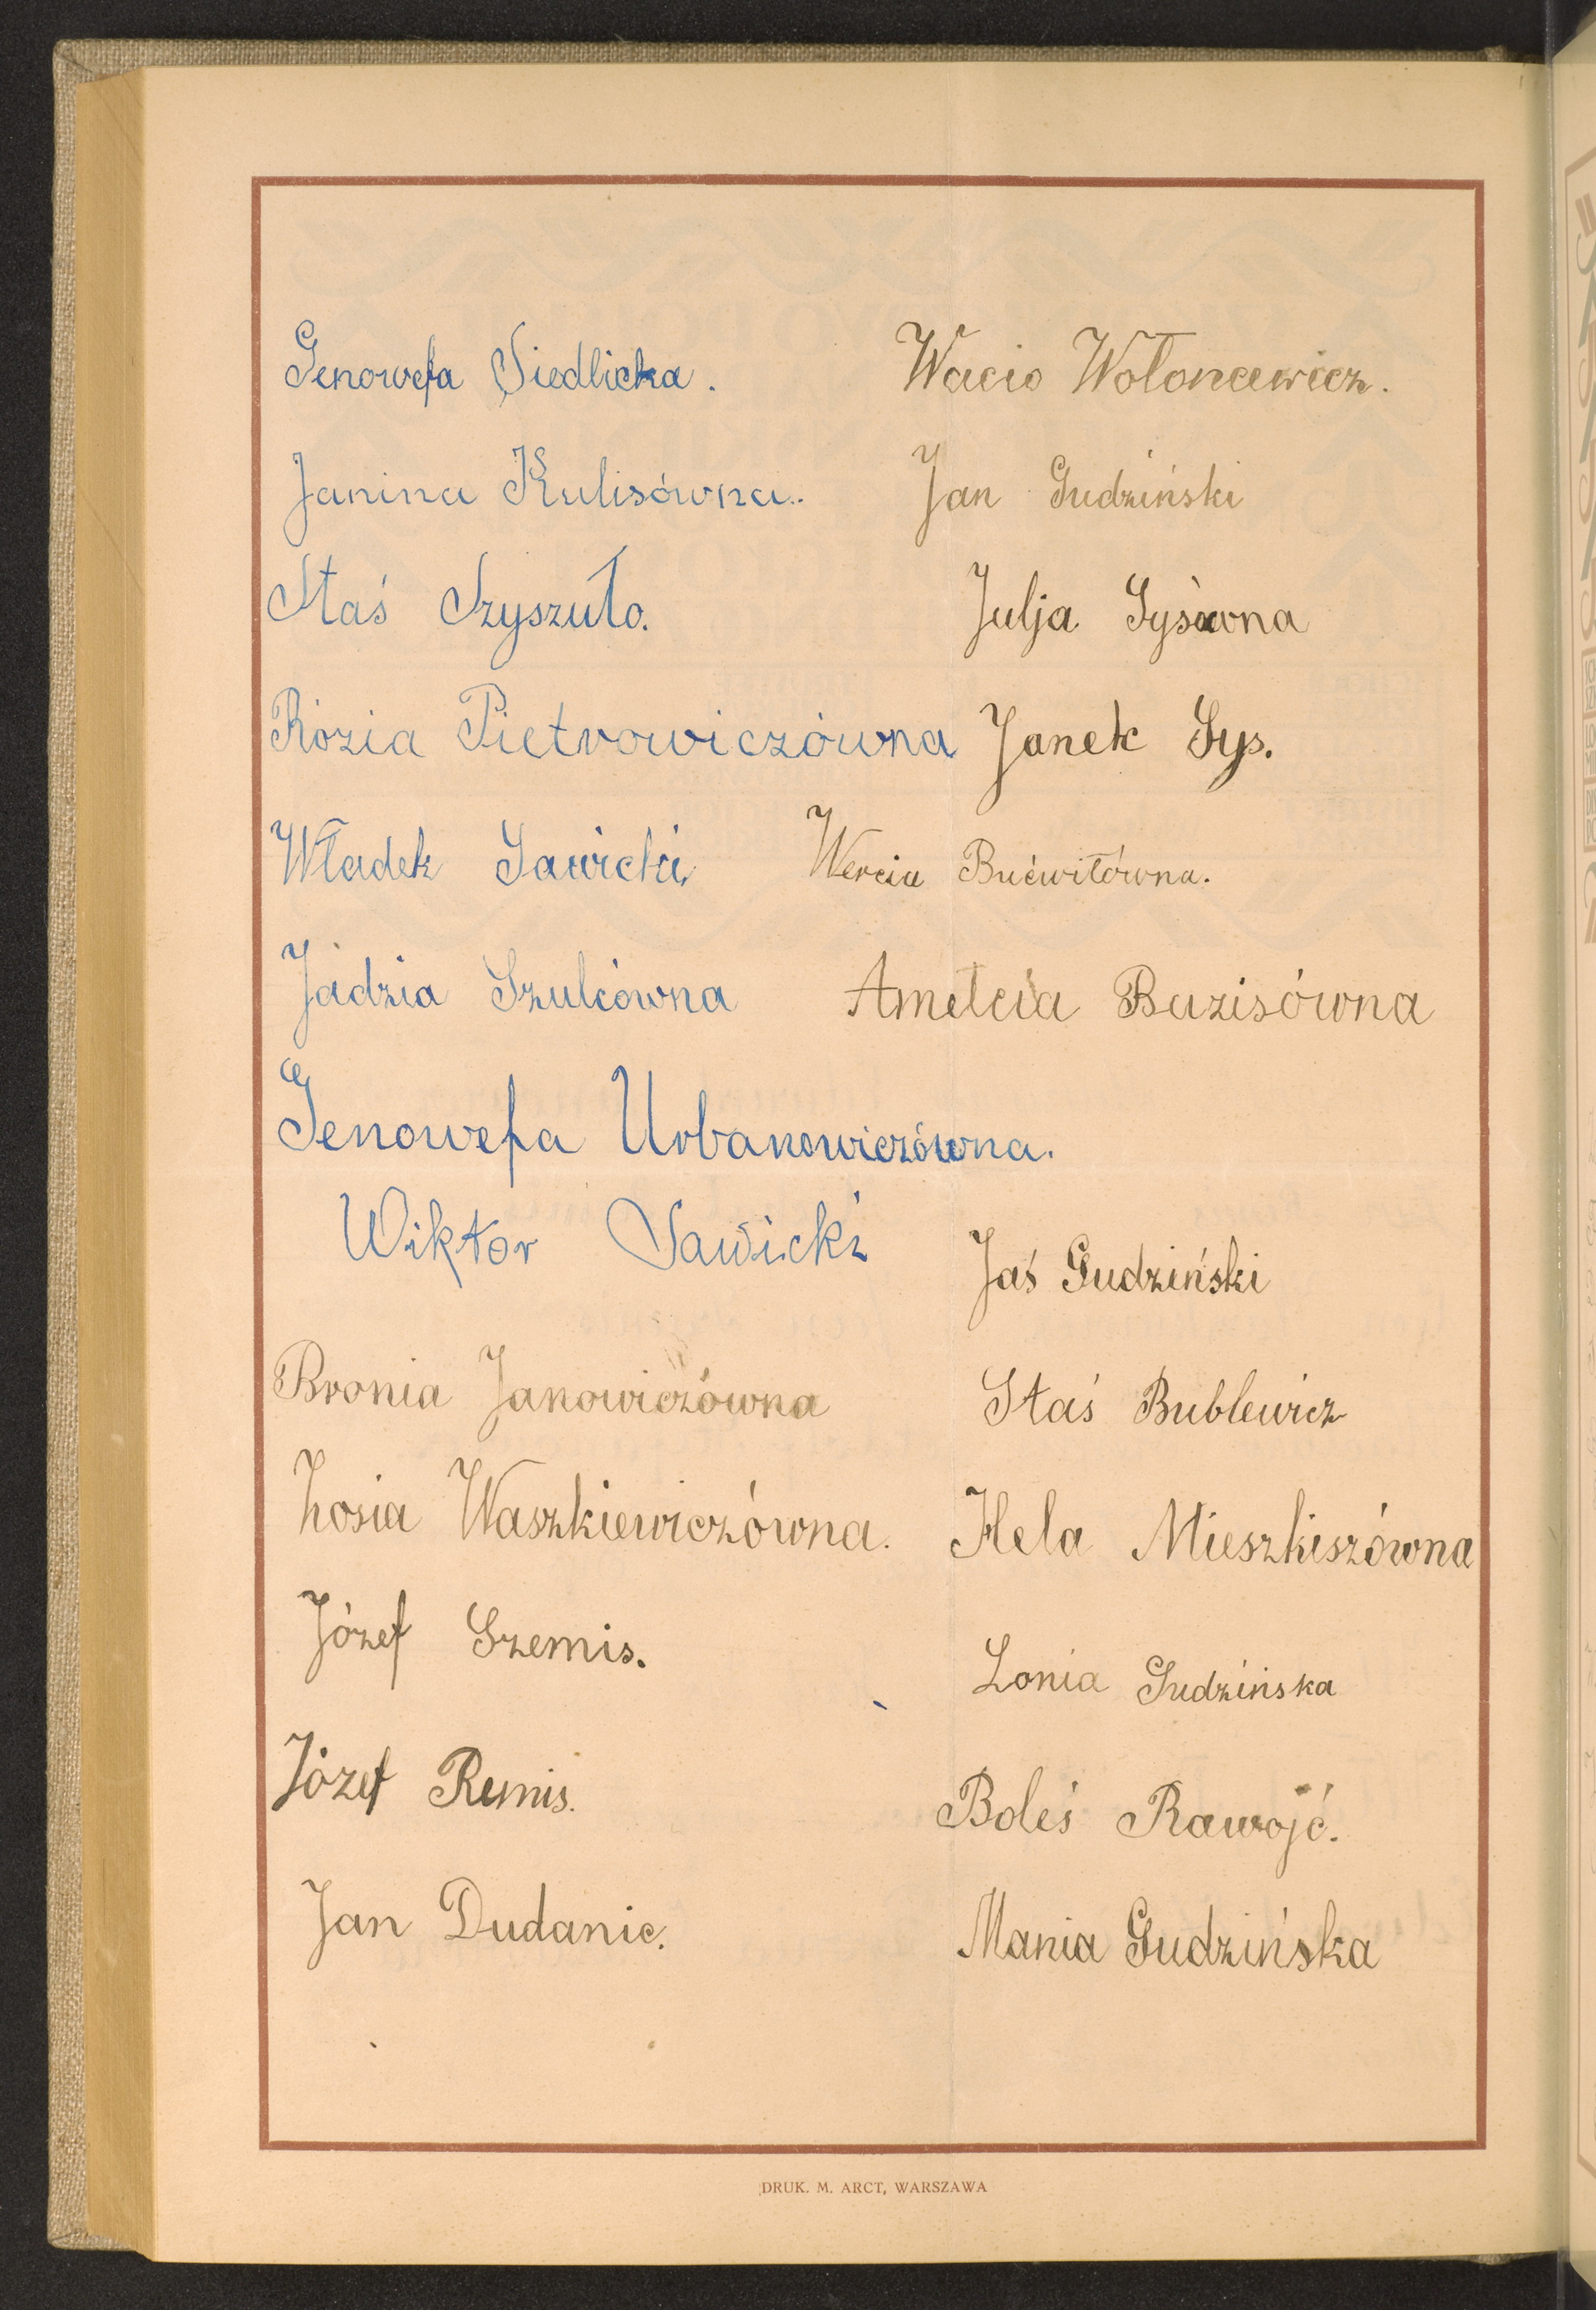 Genowefa Siedlicka.
Wacio Wołoncewicz.
Janina Kulisówna.
Jan Gudziński
Staś Szyszuło.
Julja Sysówna
Rózia Pietrowiczówna
Janek Sys.
Władek Sawicki,
Wercia Bućwiłówna.
Jadzia Szulcówna
Amelcia Buzisówna
Genowefa Urbanowiczówna.
Wiktor Sawicki
Jaś Gudziński
Bronia Janowiczówna
Staś Bublewicz
Zosia Waszkiewiczówna.
Hela Mieszkiszówna
Józef Szemis.
Lonia Gudzińska
Józef Remis.
Boleś Rawojć.
Jan Dudanic.
Mania Gudzińska
DRUK. M. ARCT, WARSZAWA